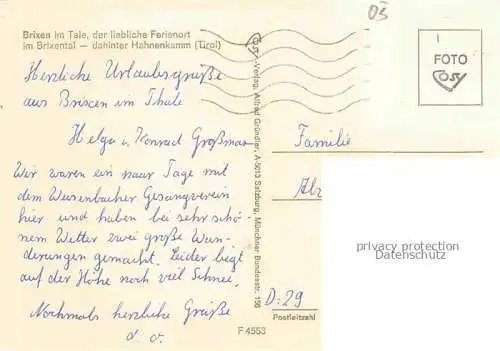 Brixen im Tale, der liebliche Ferienort
im Brixental — dahinter Hahnenkamm (Tirol)
Herzliche Urlaubsgrüße
aus Brixen im Thale
Helga u. Konrad Großman
Wir waren ein paar Tage mit
dem Weisenbacher Gesangverein
hier und haben bei sehr schö-
nem Wetter zwei große Wan-
derungen gemacht. Leider liegt
auf der Höhe noch viel Schnee.
Nochmals herzliche Grüße
d. o.
F 4553
Cosy-Verlag, Alfred Gründler, A-5013 Salzburg, Münchner Bundesstr. 156
03
FOTO
COSY
Familie
Alz
privacy protection
Datenschutz
D-29
Postleitzahl